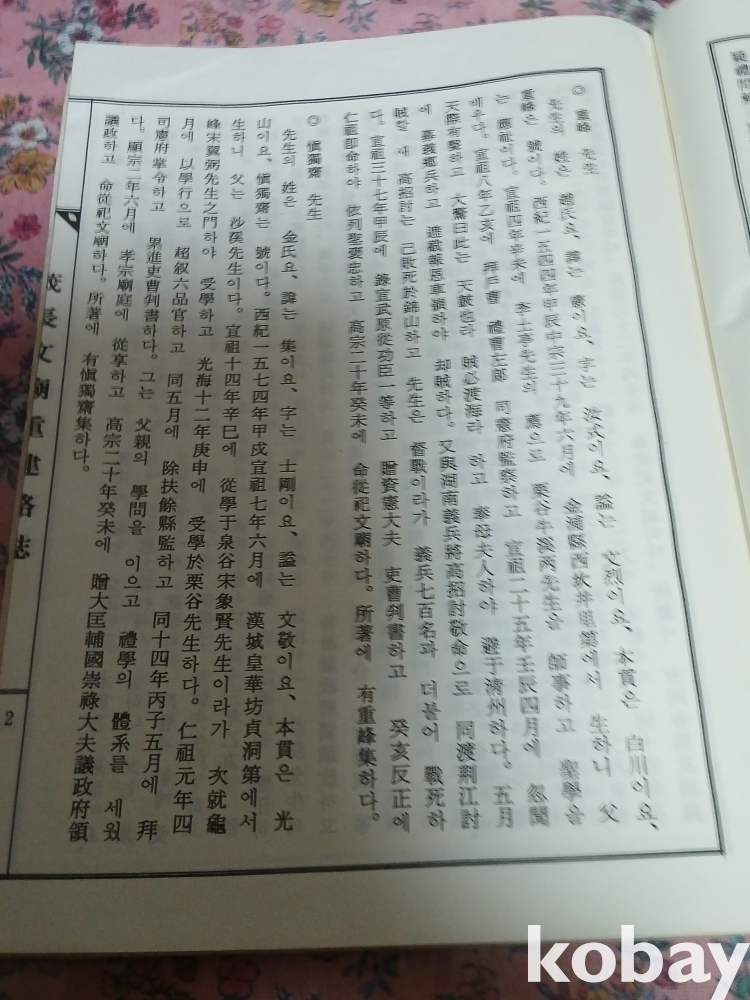 ◎ 重峰 先生
先生의 姓은 趙氏요、諱는 憲이요、字는 汝式이요、諡는 文烈이요、本貫은 白川이요、
重峰은 號이다。西紀一五四四年甲辰中宗三十九年六月에 金浦縣西坎井里第에서 生하니 父
는 應祉이다。宣祖四年辛未에 李土亭先生의 薦으로 栗谷牛溪两先生을 師事하고 聖學을
배우다。宣祖八年乙亥에 拜戶曹 禮曹左郎 司憲府監察하고 宣祖二十五年壬辰四月에 忽聞
天際有聲하고 大驚曰此는 天鼓也라 賊必渡海라 하고 奉母夫人하야 避于清州하다。五月
에 募義鄕兵하고 遮截報恩車嶺하야 却賊하다。又與湖南義兵將高招討敬命으로 同渡荊江討
賊할새 高招討는 已敗死於錦山하고 先生은 督戰이라가 義兵七百名과 더불어 戰死하
다。宣祖三十七年甲辰에 錄宣武原從功臣一等하고 贈資憲大夫 吏曹判書하고 癸亥反正에
仁祖卽命하야 依列聖褒忠하고 高宗二十年癸未에 命從祀文廟하다。所著에 有重峰集하다。
◎ 愼獨齋 先生
先生의 姓은 金氏요、諱는 集이요、字는 士剛이요、諡는 文敬이요、本貫은 光
山이요、愼獨齋는 號이다。西紀一五七四年甲戌宣祖七年六月에 漢城皇華坊貞洞第에서
生하니 父는 沙溪先生이다。宣祖十四年辛巳에 從學于泉谷宋象賢先生이라가 次就龜
峰宋翼弼先生之門하야 受學하고 光海十二年庚申에 受學於栗谷先生하다。仁祖元年四
月에 以學行으로 超叙六品官하고 同五月에 除扶餘縣監하고 同十四年丙子五月에 拜
司憲府掌令하고 累進吏曹判書하다。그는 父親의 學問을 이으고 禮學의 體系를 세웠
다。顯宗二年六月에 孝宗廟庭에 從享하고 高宗二十年癸未에 贈大匡輔國崇祿大夫議政府領
議政하고 命從祀文廟하다。所著에 有愼獨齋集하다。
文廟重建略誌
2
kobay